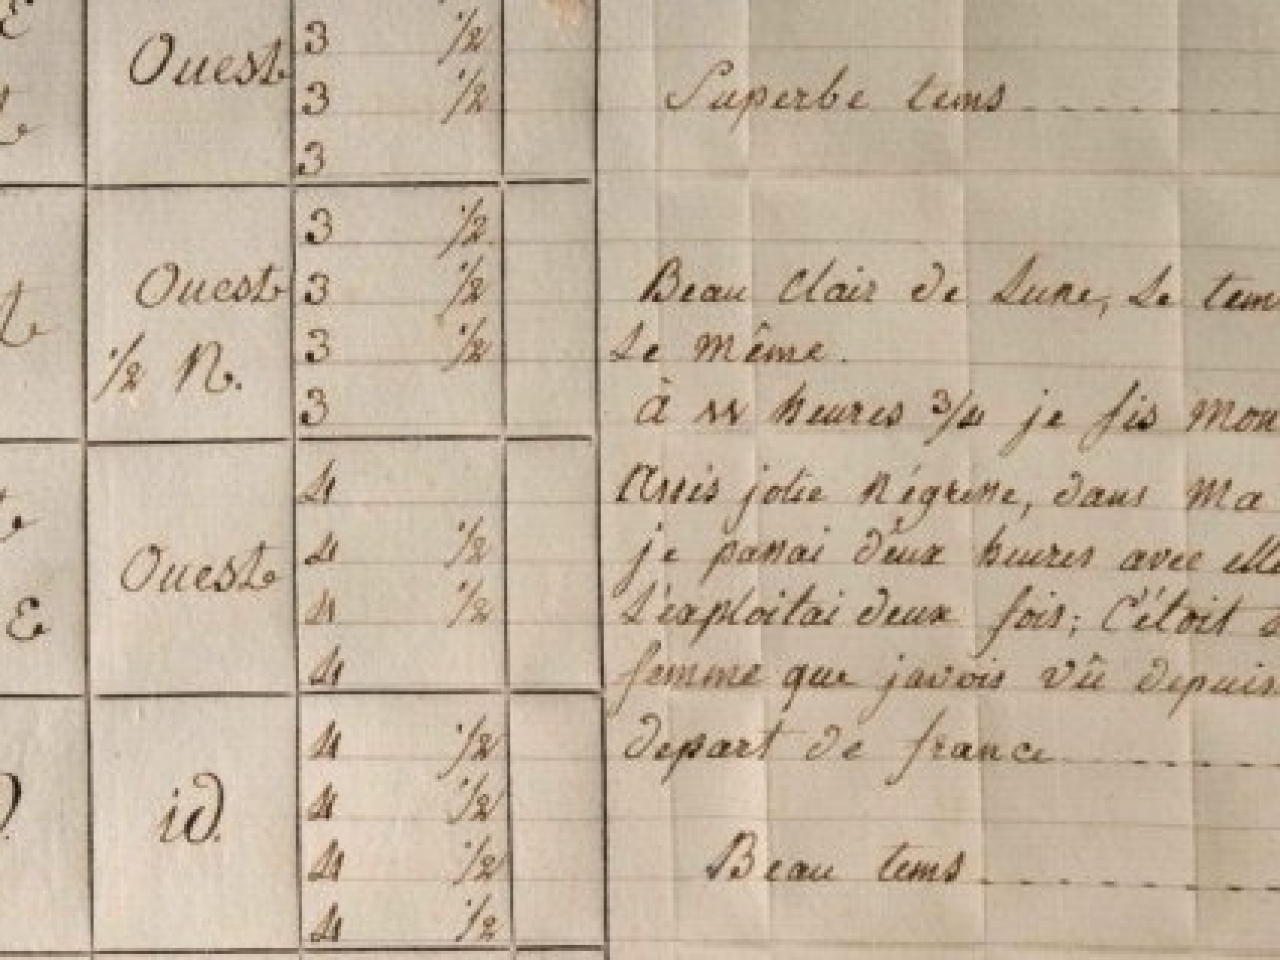 Ouest
3 1/2
3 1/2
3
Superbe tems
Ouest
1/2 N.
3 1/2
3 1/2
3 1/2
3
Beau Clair de Lune, Le tem
Le même.
à 11 heures 3/4 je fis mon
Ouest
4
4 1/2
4 1/2
4
assis jolie négresse, dans ma
je passai deux heures avec elle
L'exploitai deux fois; C'étoit
femme que javois vû depuis
E
id.
4 1/2
4 1/2
4 1/2
4 1/2
depart de france
Beau tems